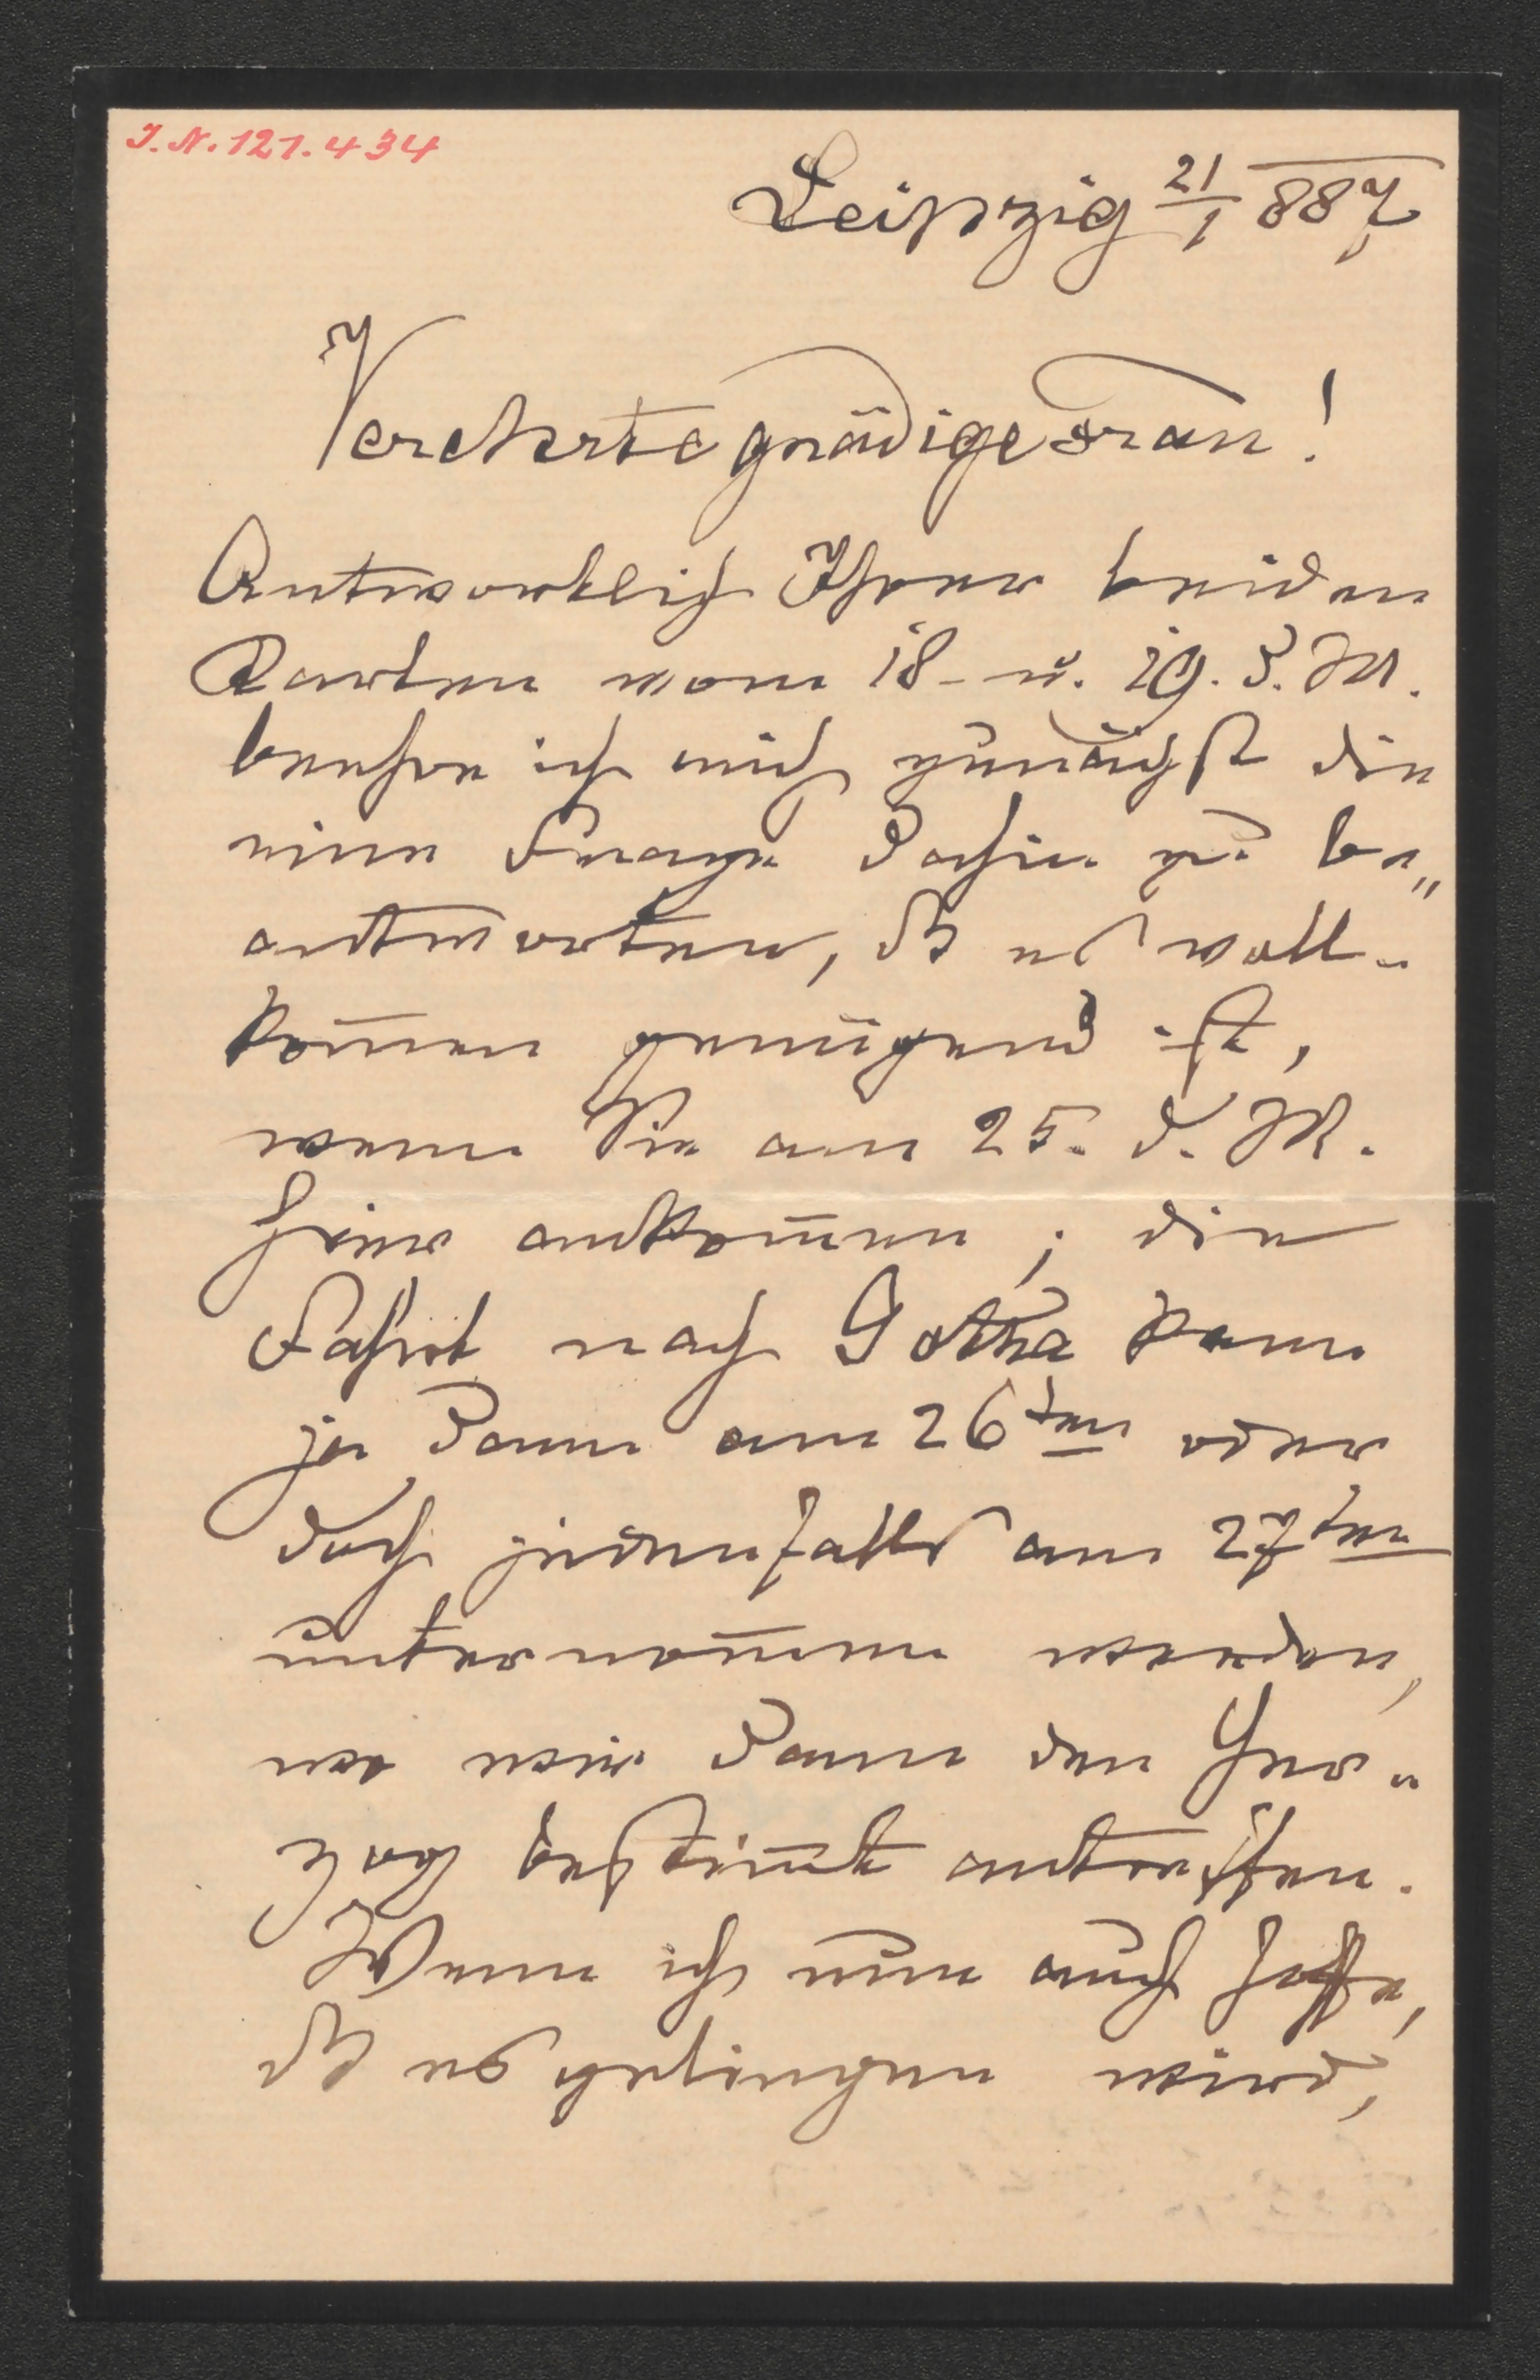 I. N. 121.434
Leipzig 21/1 887
Verehrte gnädige Frau!
Antwortlich Ihrer beiden
Karten vom 18. u. 19. d. M.
beehre ich mich zunächst die
eine Frage dahin zu be„
antworten, dß es voll-
kom̄en genügend ist,
wenn Sie am 25. d. M.
hier ankom̄en; die
Fahrt nach Gotha kann
ja dann am 26ten oder
doch jedenfalls am 27ten
unternom̄en werden,
wo wir dann den Her-
zog bestim̄t antreffen.
Wenn ich nun auch hoffe,
dß es gelingen wird,